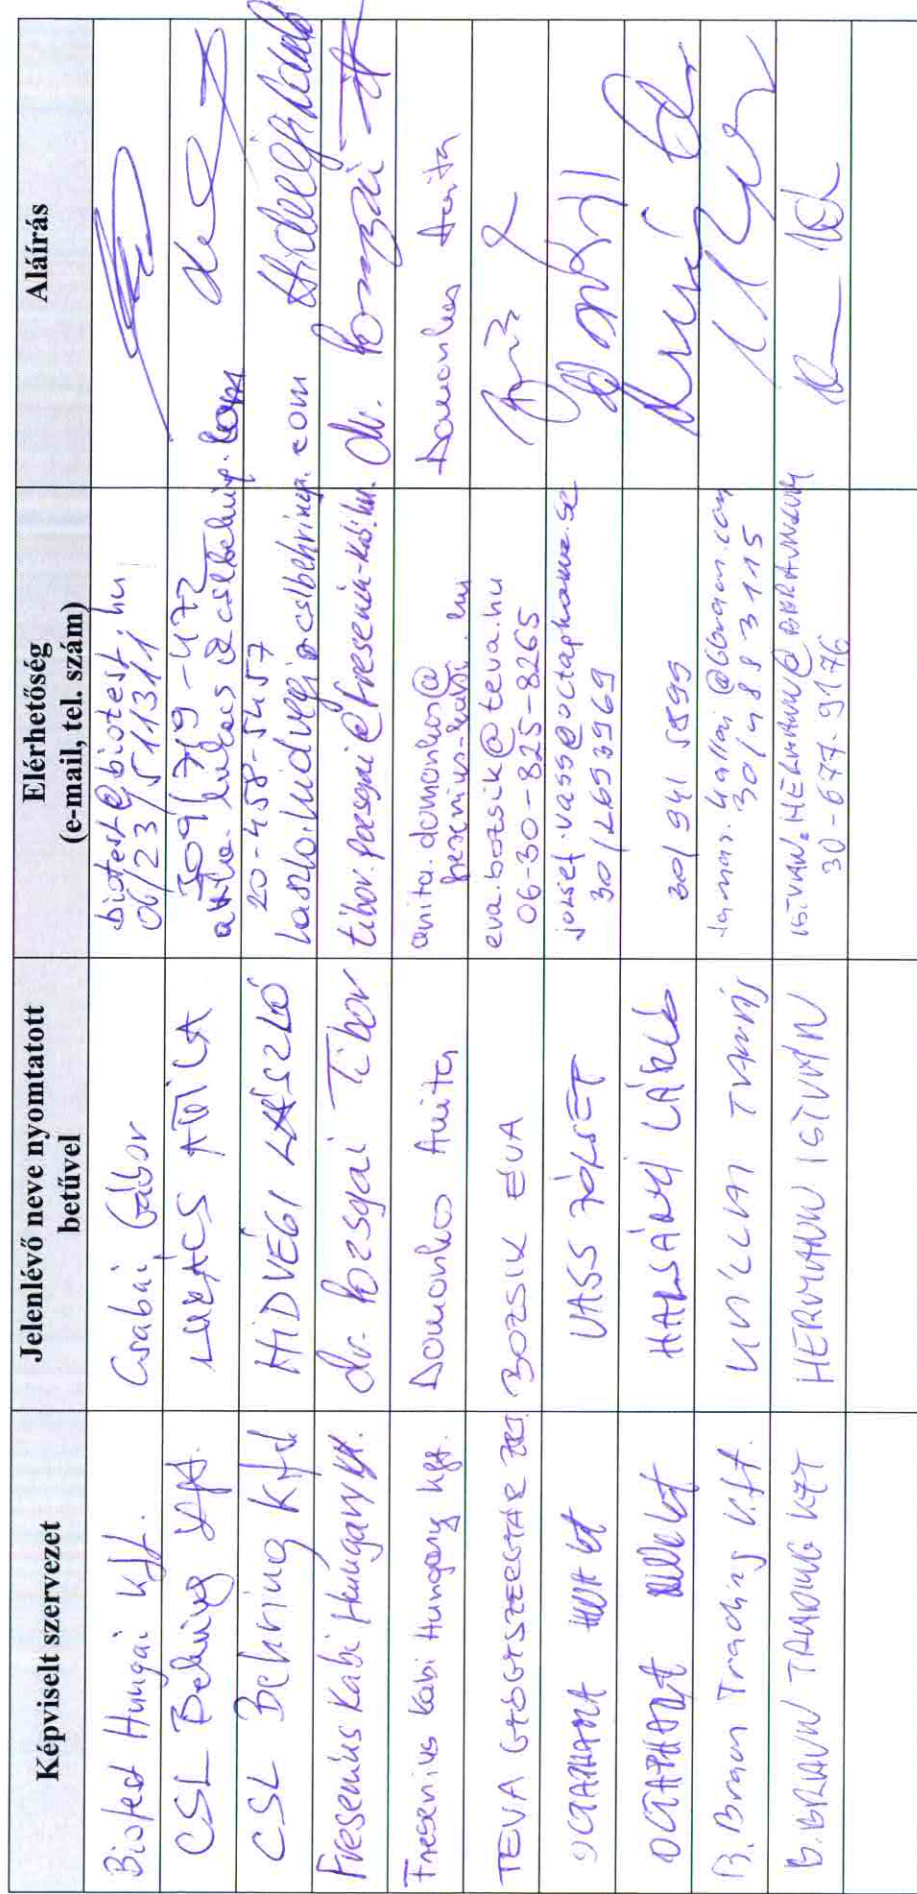 Képviselt szervezet
Jelenlévő neve nyomtatott
betűvel
Elérhetőség
(e-mail, tel. szám)
Aláírás
Biotest Hungai Kft.
Csabai Gábor
biotest@biotest.hu
06/23/511311
CSL Behring Kft.
LUKÁCS ATTILA
309/719-472
attila.lukacs@cslbehring.com
CSL Behring Kft.
HIDVÉGI LÁSZLÓ
20-458-5457
laszlo.hidvegi@cslbehring.com
Fresenius Kabi Hungary Kft.
dr. Pozsgai Tibor
tibor.pozsgai@fresenius-kabi.hu
dr. Pozsgai
Fresenius Kabi Hungary Kft.
Domonkos Anita
anita.domonkos@
fresenius-kabi.hu
Domonkos Anita
TEVA GYÓGYSZERGYÁR ZRT.
BOZSIK ÉVA
eva.bozsik@teva.hu
06-30-825-8265
VASS JÓZSEF
jozsef.vass@octapharma.se
30/2693969
HALSÁNYI
30/941 5899
B. Braun Trading Kft.
TAMÁS
30/4883115
B.BRAUN TRADING KFT
HERMANN ISTVÁN
ISTVAN.HERMANN@BBRAUN.COM
30-677-9176